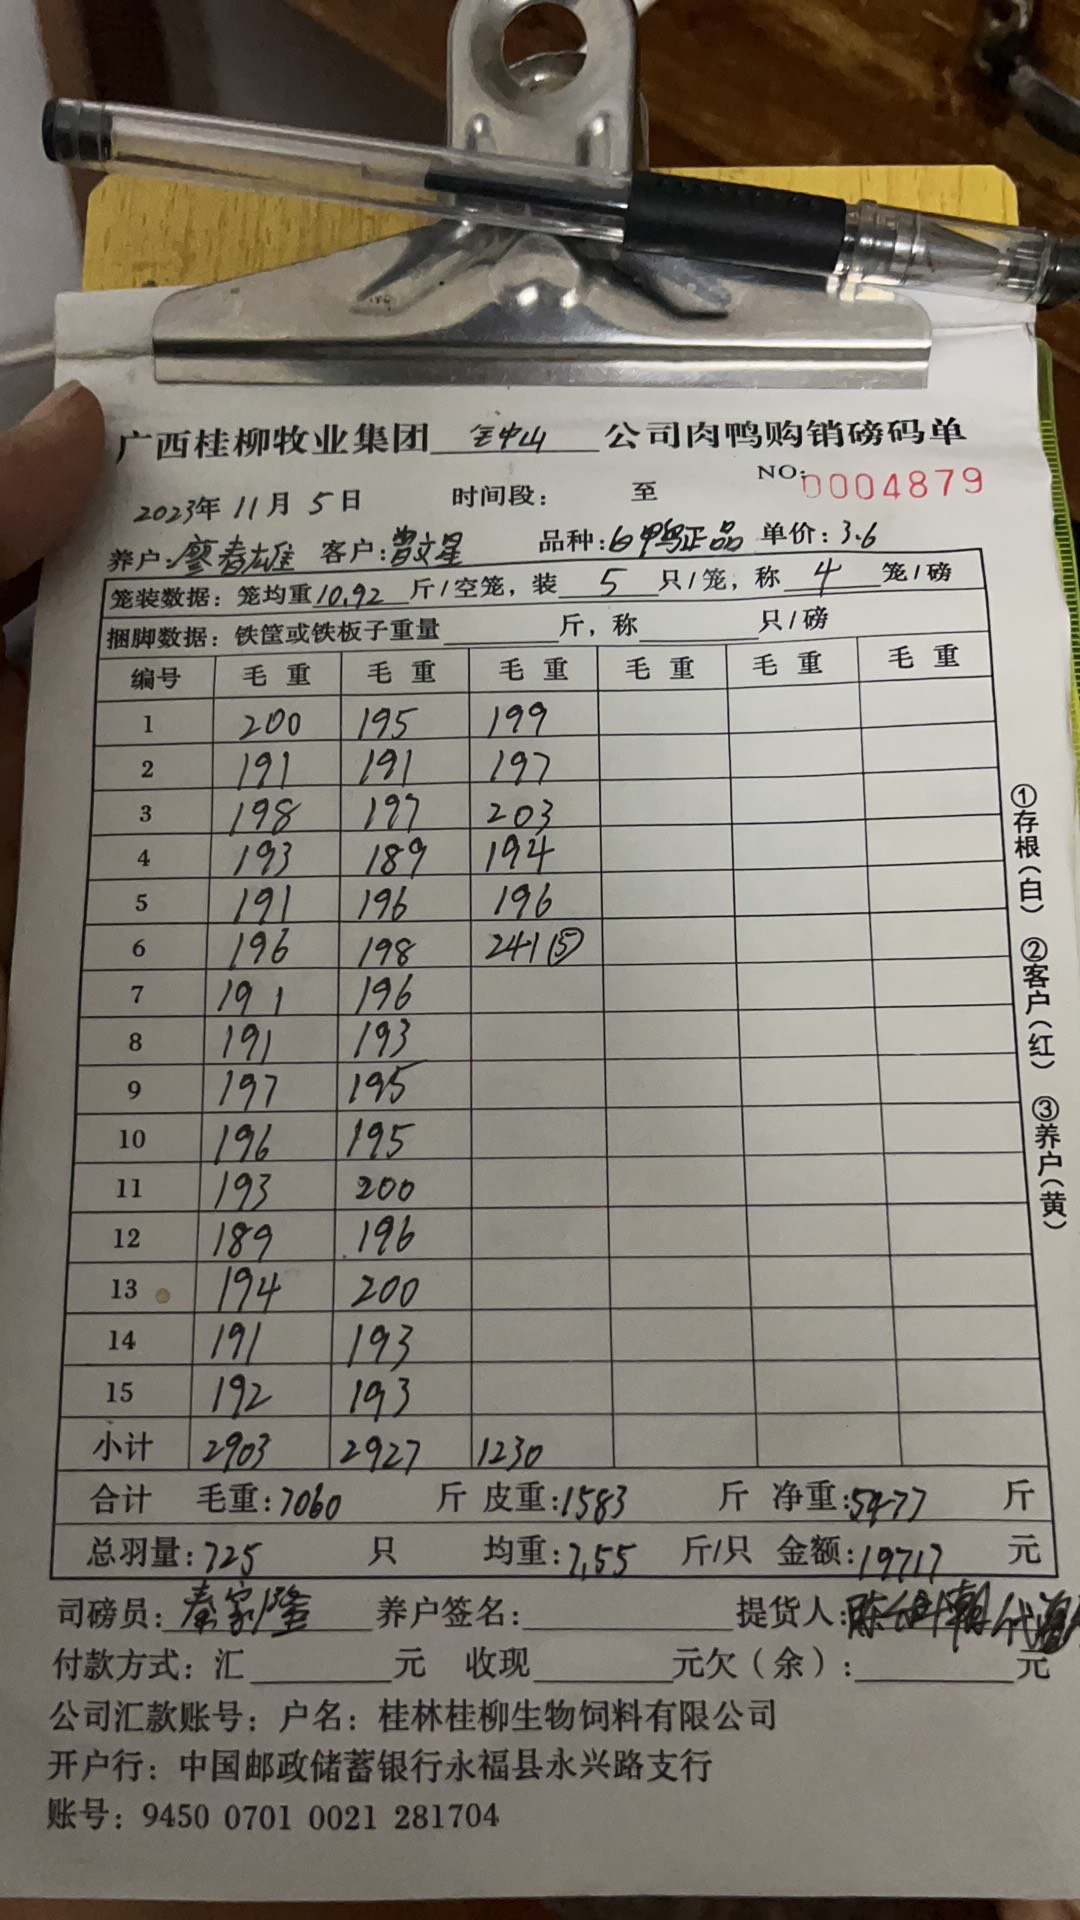 广西桂柳牧业集团 金中山 公司肉鸭购销磅码单
NO: 0004879
2023年 11月 5日 时间段: 至
养户: 廖春雄 客户: 曾文星 品种: 白鸭正品 单价: 3.6
笼装数据: 笼均重 10.92 斤/空笼, 装 5 只/笼, 称 4 笼/磅
捆脚数据: 铁筐或铁板子重量 斤, 称 只/磅
编号 毛重 毛重 毛重 毛重 毛重 毛重
1 200 195 199
2 191 191 197
3 198 197 203
4 193 189 194
5 191 196 196
6 196 198 241 ⑤
7 191 196
8 191 193
9 197 195
10 196 195
11 193 200
12 189 196
13 194 200
14 191 193
15 192 193
小计 2903 2927 1230
合计 毛重: 7060 斤 皮重: 1583 斤 净重: 5477 斤
总羽量: 725 只 均重: 7.55 斤/只 金额: 19717 元
司磅员: 秦家隆 养户签名: 提货人: 代
付款方式: 汇 元 收现 元欠(余): 元
公司汇款账号: 户名: 桂林桂柳生物饲料有限公司
开户行: 中国邮政储蓄银行永福县永兴路支行
账号: 9450 0701 0021 281704
①存根(白) ②客户(红) ③养户(黄)